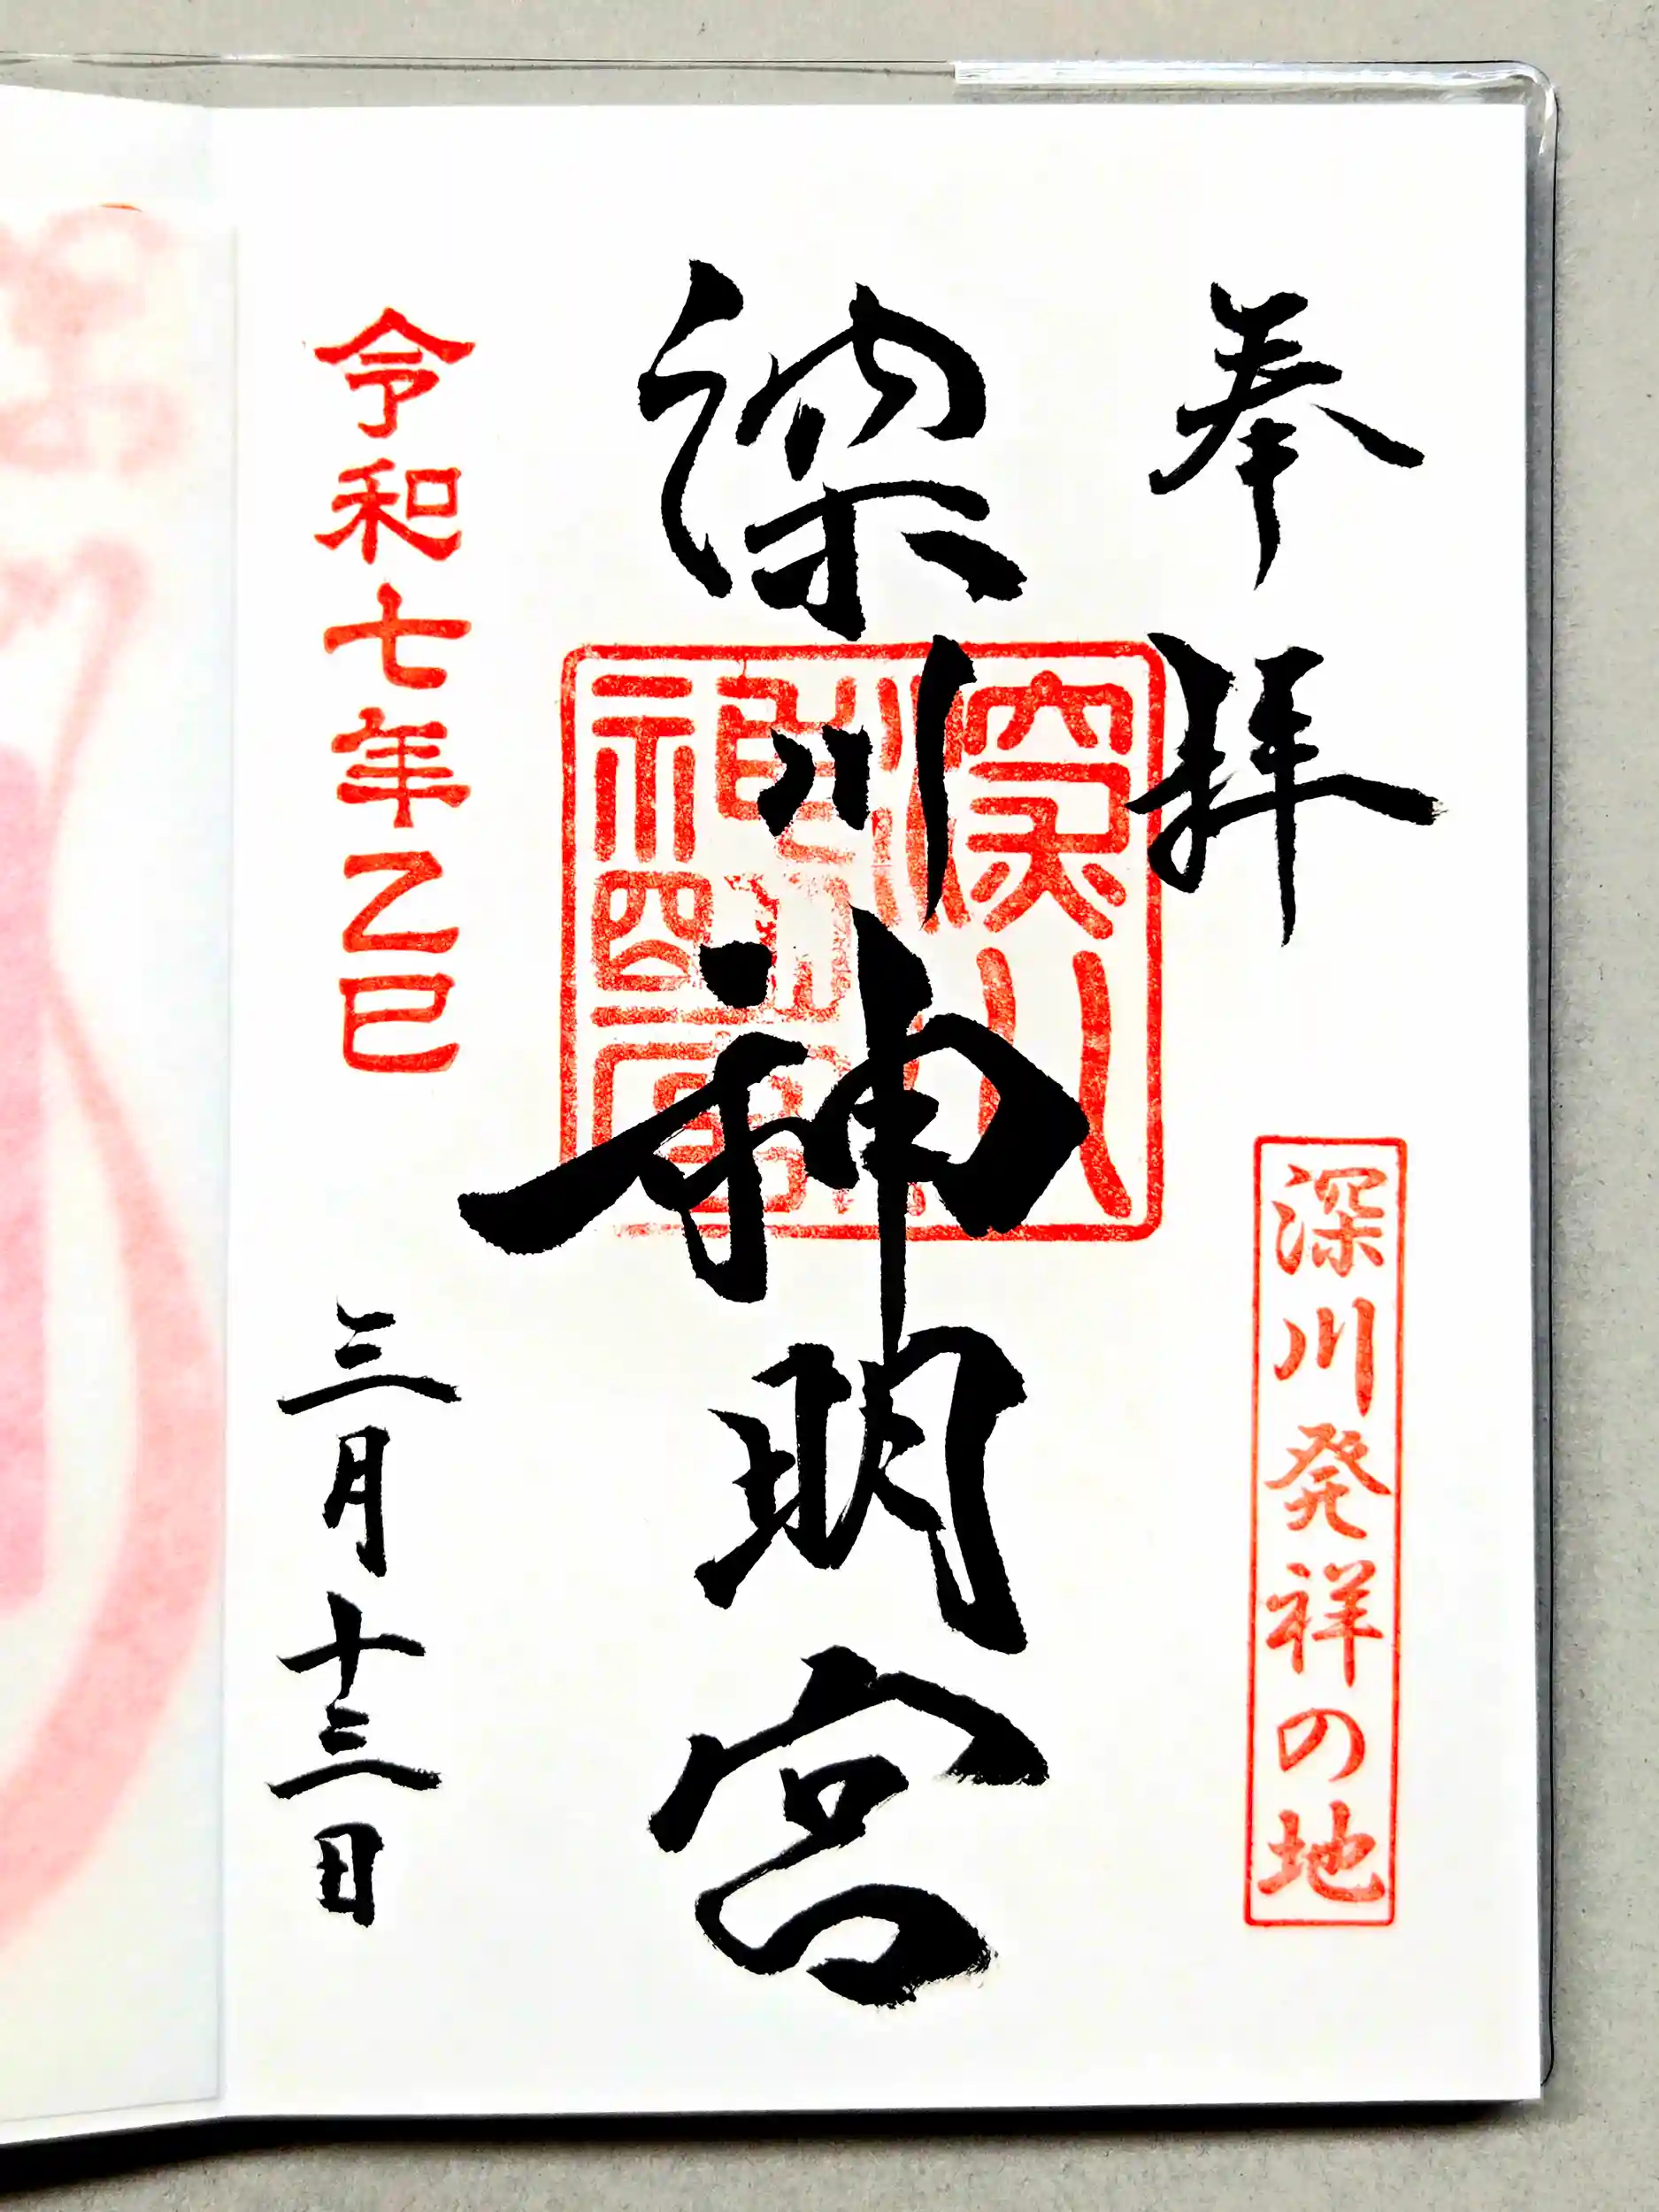 奉拝
深川発祥の地
深川神明宮
深川神明宮
令和七年乙巳
三月十三日